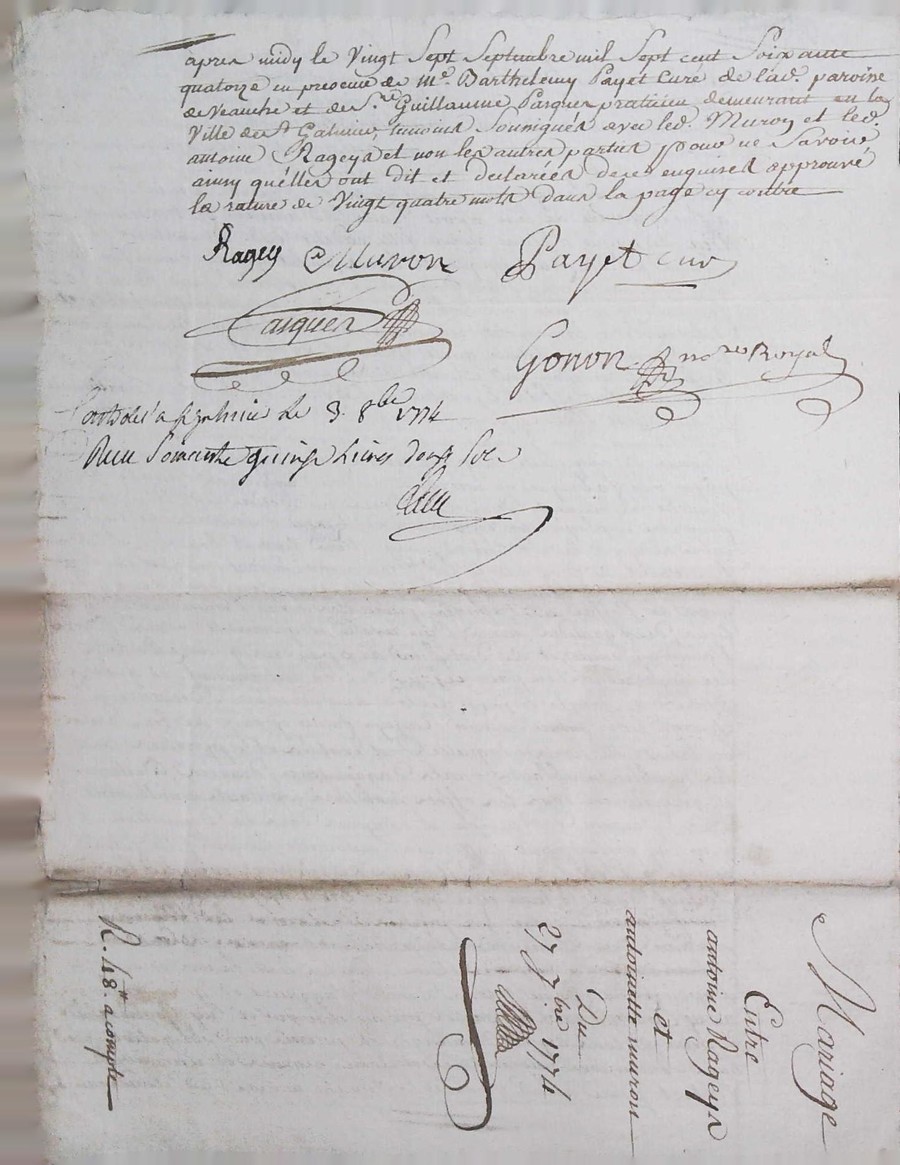 apres midy le Vingt Sept Septembre mil Sept cent Soixante
quatorze en presence de Mre. Barthelemy Payet Curé de lad. paroisse
de Veauche et de Sr. Guillaume Pasquer praticien demeurant en la
Ville de St. Galmier, temoins Soussignés avec led. Muron et led.
antoine Rageys et non les autres parties pour ne Savoir
ainsy quélles ont dit et declarées de ce enquises approuvé
la rature de Vingt quatre mots dans la page cy contre
Ragey Muron Payet curé
Pasquer
Gonon nore Royal
a St galmier le 3. 8bre 1774
Reçu Soixante quinze livres douze Sols
Mariage
Entre
antoine Rageys
et
antoinette muron
Du
27 7bre 1774
R. 48tt a compte